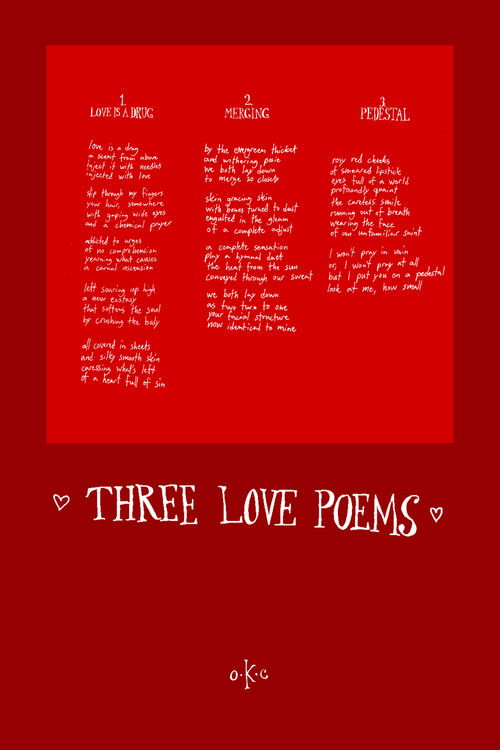 1.
LOVE IS A DRUG
love is a drug
a scent from above
inject it with needles
injected with love
slip through my fingers
your hair, somewhere
with gaping wide eyes
and a chemical prayer
addicted to urges
of no comprehension
yearning what causes
a carnal ascension
left soaring up high
a new ecstasy
that softens the soul
by crushing the body
all covered in sheets
and silky smooth skin
caressing what's left
of a heart full of sin
2.
MERGING
by the evergreen thicket
and withering pine
we both lay down
to merge so closely
skin grazing skin
with bones turned to dust
engulfed in the gleam
of a complete adjust
a complete sensation
play a hymnal duet
the heat from the sun
conveyed through our sweat
we both lay down
as two turn to one
your facial structure
now identical to mine
3.
PEDESTAL
rosy red cheeks
of smeared lipstick
eyes full of a world
profoundly quaint
the careless smile
running out of breath
wearing the face
of an unfamiliar saint
I won't pray in vain
or, I wont pray at all
but I put you on a pedestal
look at me, how small
♡ THREE LOVE POEMS ♡
o.K.c